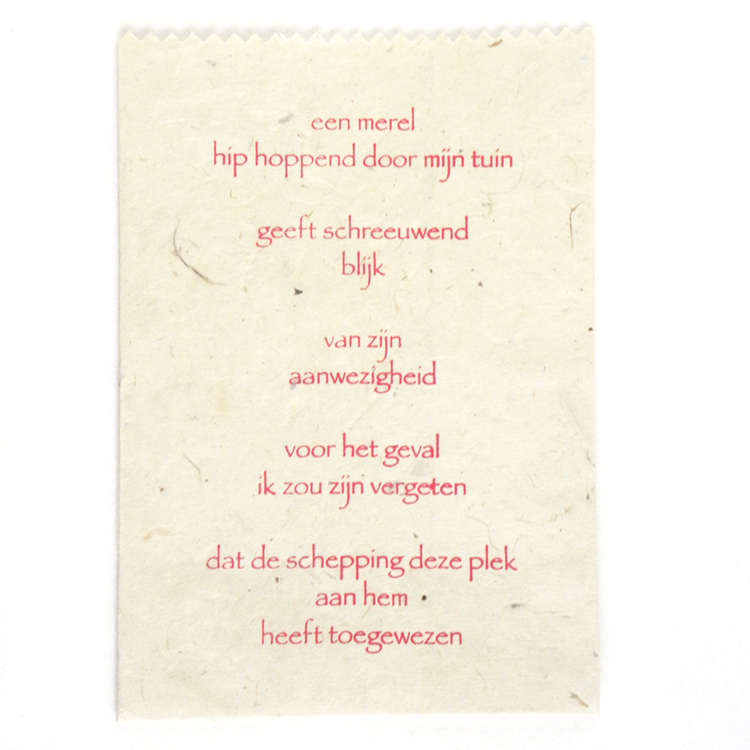 een merel
hip hoppend door mijn tuin
geeft schreeuwend
blijk
van zijn
aanwezigheid
voor het geval
ik zou zijn vergeten
dat de schepping deze plek
aan hem
heeft toegewezen